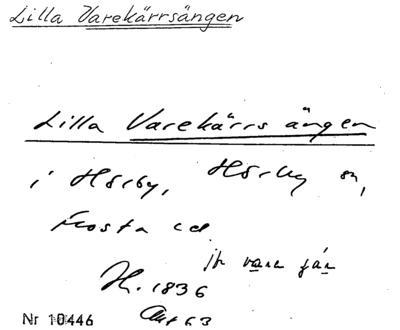 Lilla Varekärrsängen
Lilla Varekärrs ängen
i Hörby, Hörby sn,
Frosta hd.
jfr
H. 1836
Akt 63
Nr 10446